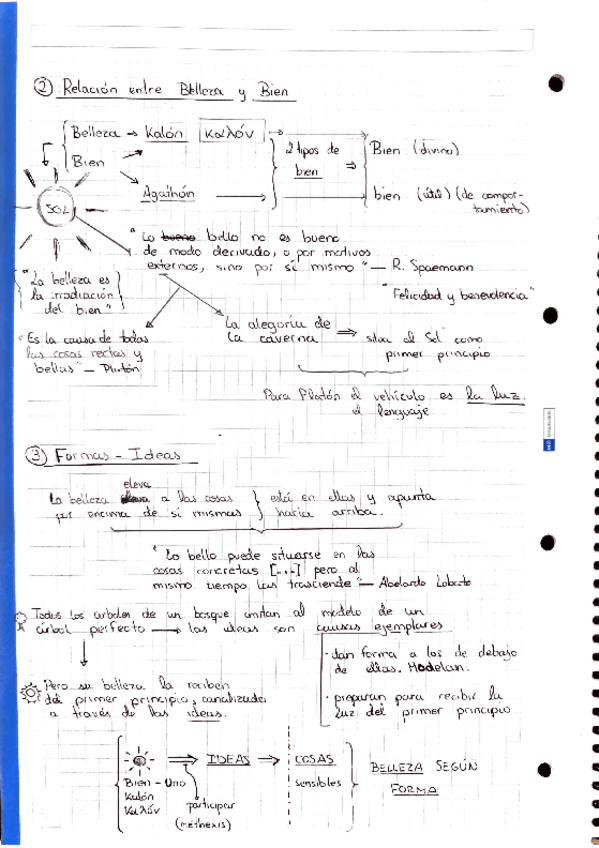 ② Relación entre Belleza y Bien
Belleza → Kalón καλόν
Bien
Agathón
2 tipos de
bien
Bien (divino)
bien (útil) (de compor-
tamiento)
SOL
"Lo bueno bello no es bueno
de modo derivado, o por motivos
externos, sino por sí mismo" — R. Spaemann
"Felicidad y benevolencia"
"La belleza es
la irradiación
del bien"
"Es la causa de todas
las cosas rectas y
bellas" — Platón
La alegoría de
la caverna
⇒ sitúa el Sol como
primer principio
Para Platón el vehículo es la luz.
el lenguaje
③ Formas - Ideas
eleva
La belleza a las cosas
por encima de sí mismas
está en ellas y apunta
hacia arriba.
"Lo bello puede situarse en las
cosas concretas [...] pero al
mismo tiempo las trasciende" — Abelardo Lobato
Todos los árboles de un bosque imitan al modelo de un
árbol perfecto → las ideas son causas ejemplares
· dan forma a los de debajo
de ellas. Modelan.
· preparan para recibir la
luz del primer principio
Pero su belleza la reciben
del primer principio, canalizada
a través de las ideas.
⇒ IDEAS → COSAS
sensibles
Bien - Uno
Kalón
καλόν
participar
(methexis)
BELLEZA SEGÚN
FORMA